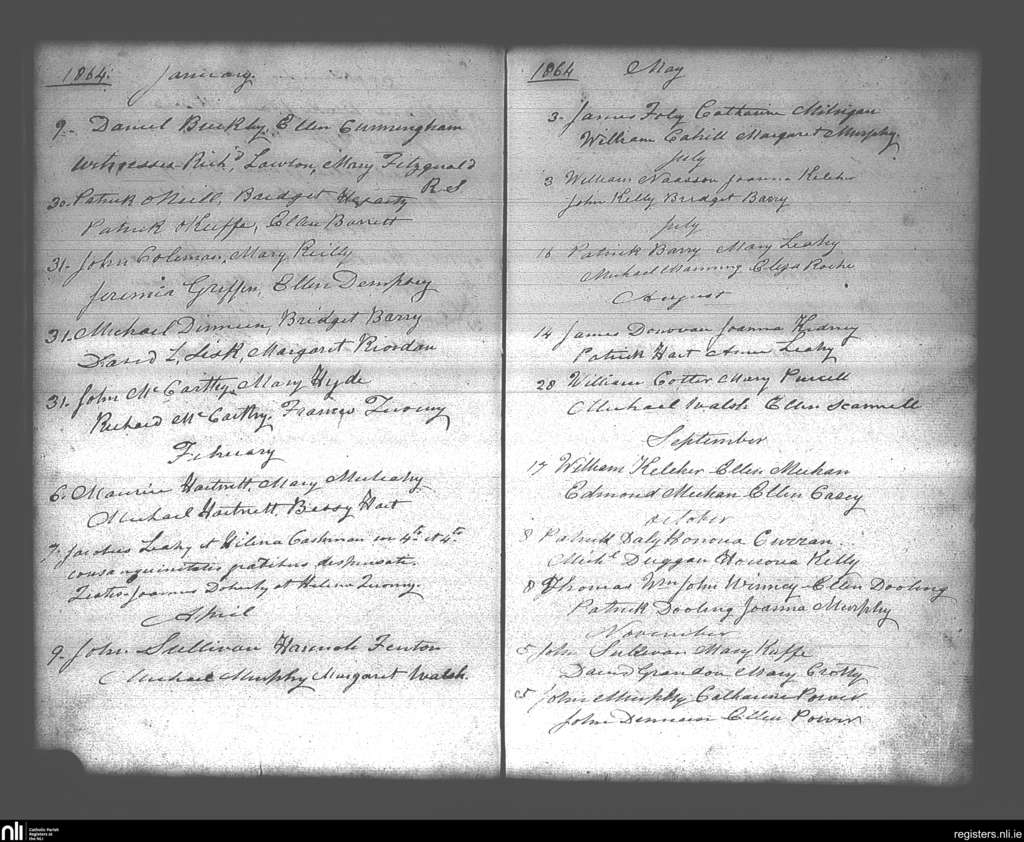 1864. January.
9- Daniel Buckley, Ellen Cunningham
Witnesses- Rich'd, Lawton, Mary Fitzgerald
R S
30. Patrick O'Neill, Bridget Hegarty
Patrick O'Keeffe, Ellen Barrett
31- John Coleman, Mary Reilly
Jeremia Griffin, Ellen Dempsey
31. Michael Dinneen, Bridget Barry
David L. Lisk, Margaret Riordan
31. John McCarthy, Mary Hyde
Richard McCarthy, Frances Twomy
February
6. Maurice Hartnett, Mary Mulcahy
Michael Hartnett, Bessy Hart
7. Jacobus Leahy et Helena Cashman in 4to et 4to
consanguinitatis gratibus dispensatis.
Testes- Joannes Doherty et Helena Twomy.
April
9- John Sullivan Hannah Fenton
Michael Murphy Margaret Walsh.
1864 May
3. James Foly Catharine Milrigan
William Cahill Margaret Murphy.
July
3 William Joanna Kelcher
John Kelly Bridget Barry
July
16 Patrick Barry Mary Leahy
Michael Manning Eliza Roche
August
14 James Donovan Joanna Kidney
Patrick Hart Anne Leahy
28 William Cotter Mary Purcell
Michael Walsh Ellen Scannell
September
17 William Kelcher Ellen Meehan
Edmond Meehan Ellen Casey
October
8 Patrick Daly Honora Curran
Michl Duggan Honora Kelly
8 Thomas Wm John Winney Ellen Dooling
Patrick Dooling Joanna Murphy
November
5 John Sullivan Mary Kuffe
David Grandon Mary Crotty
5 John Murphy Catharine Power
John Dinneen Ellen Power
nli Catholic Parish
Registers at
the NLI
registers.nli.ie